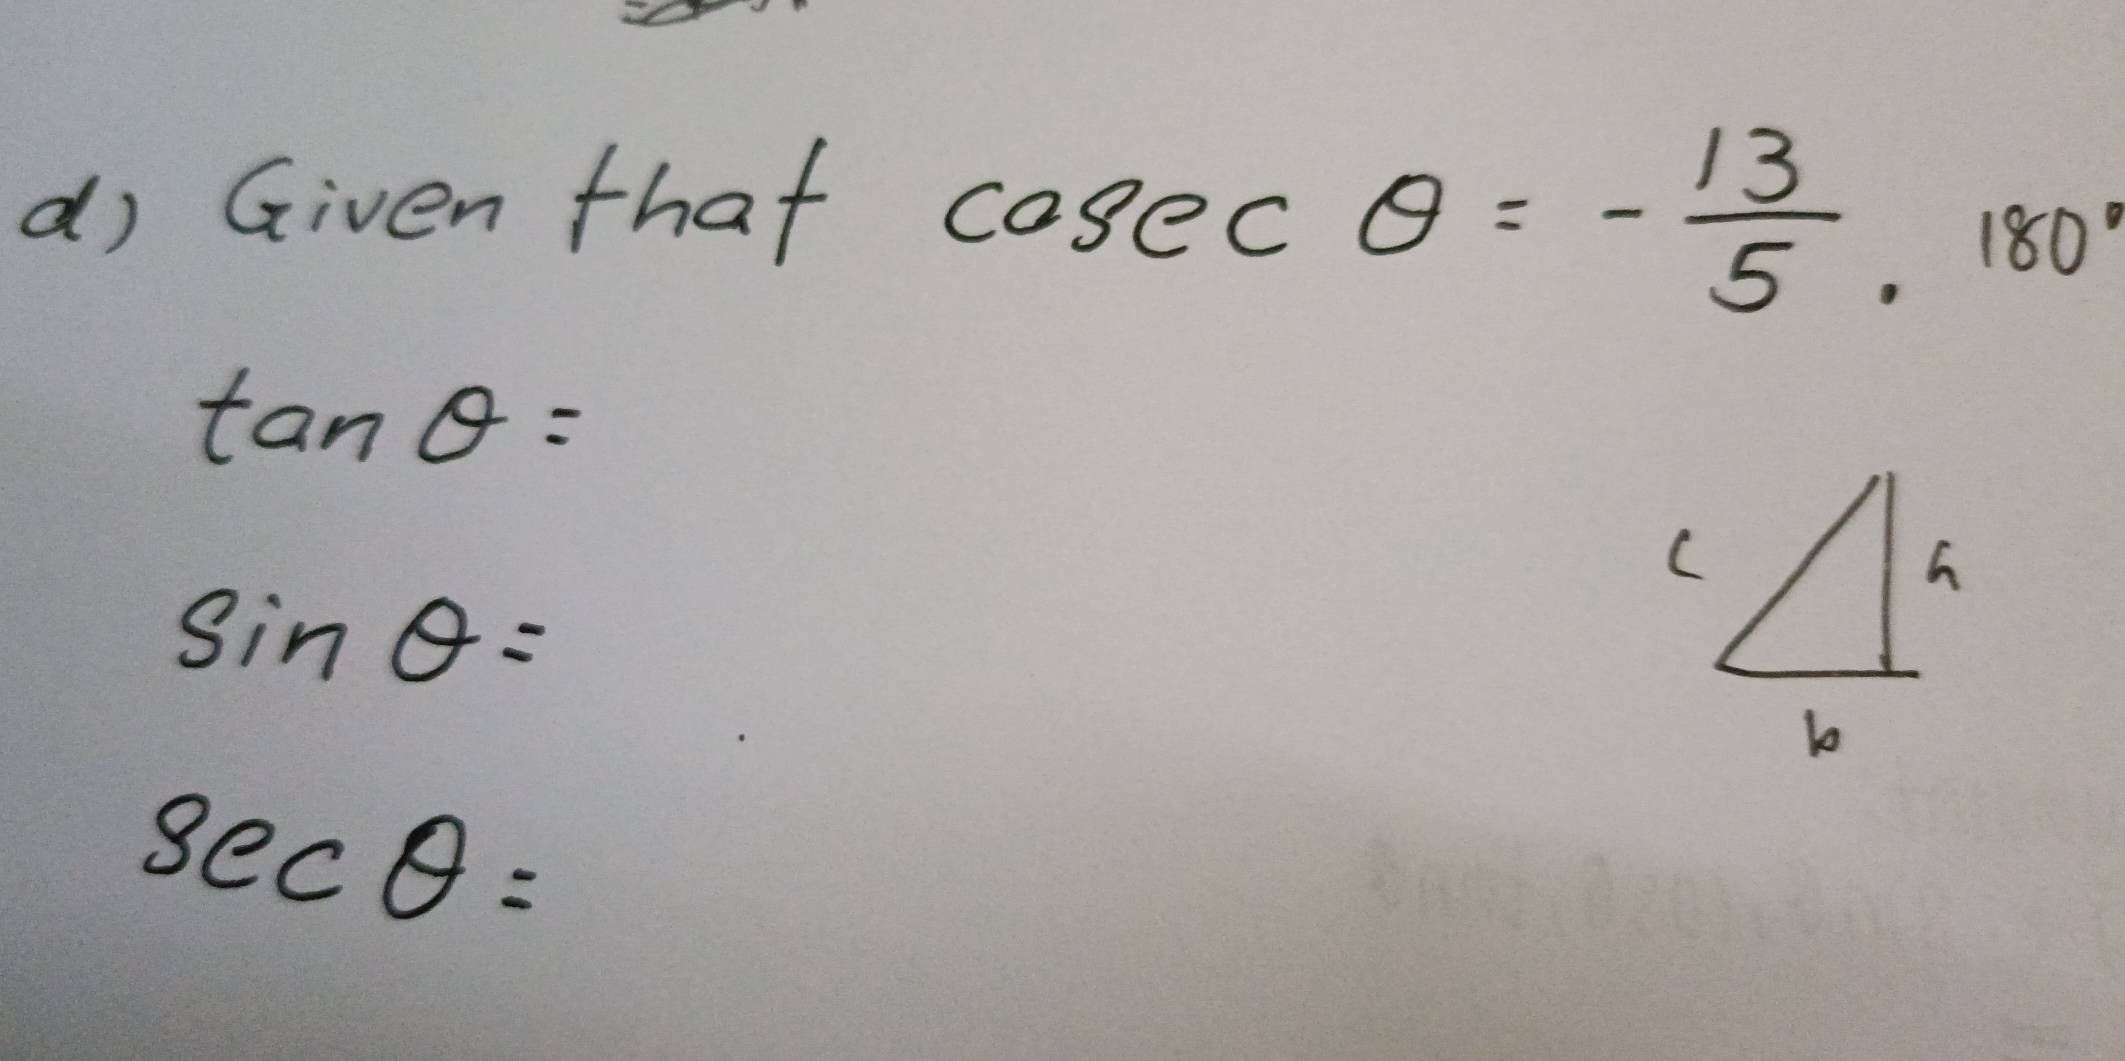 d) Given that cosec θ = - 13/5 . 180°
tan θ =
sin θ =
sec θ =
c
b